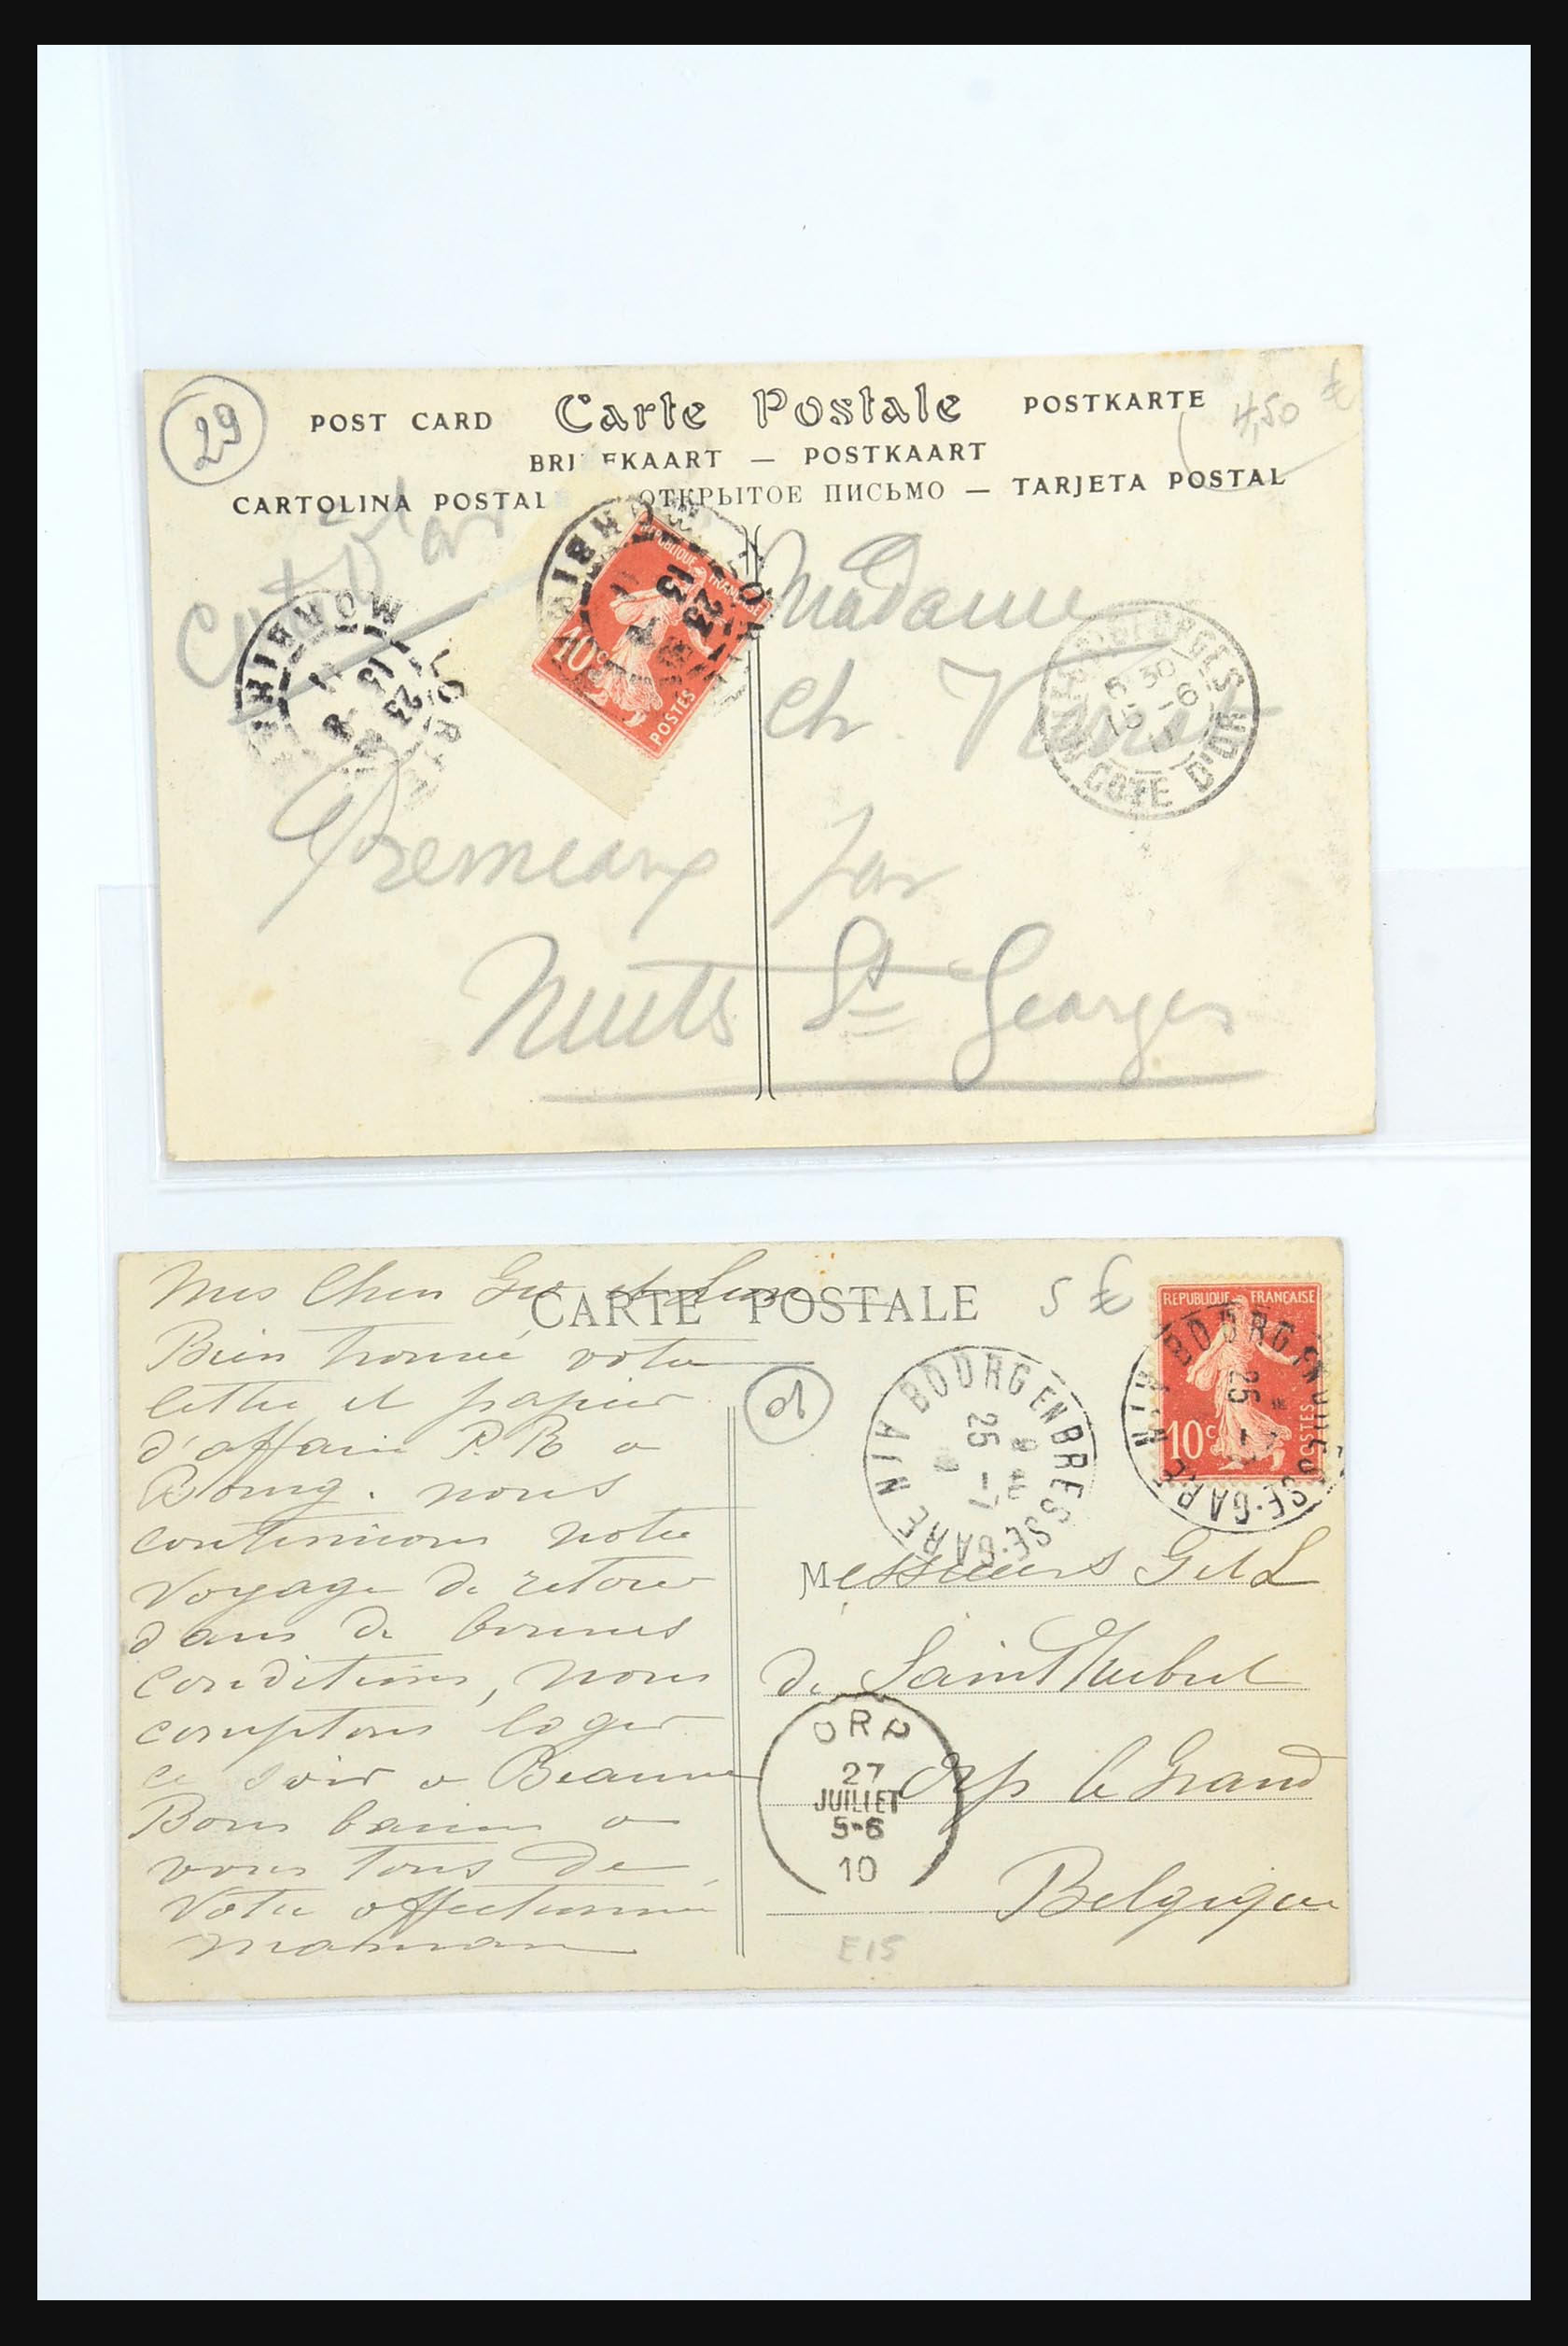 29
POST CARD Carte Postale POSTKARTE
4,50 €
BRI EKAART — POSTKAART
CARTOLINA POSTAL ОТКРЫТОЕ ПИСЬМО — TARJETA POSTAL
Cote d'or
MORBIHAN
13
23
REPUBLIQUE FRANÇAISE
10c
POSTES
13
23
Madame
Ch.
GEORGES
6 30
15 -6
COTE D'OR
Premeaux par
Nuits St Georges
CARTE POSTALE
5 €
01
Mes Chers Guy et
Bien trouvé votre
lettre et papier
d'affaire P.R a
Bourg. nous
continuons notre
voyage de retour
dans de bonnes
conditions, nous
comptons loger
ce soir a Beaune
Bons baisers a
vous tous de
Votre affectionnée
maman
REPUBLIQUE FRANÇAISE
10c
POSTES
BOURG EN BRESSE-GARE AIN
25 -7
BOURG EN BRESSE-GARE AIN
25 -7
Messieurs G et L
de Saint Hubert
Orp le Grand
Belgique
ORP
27
JUILLET
5-6
10
E15